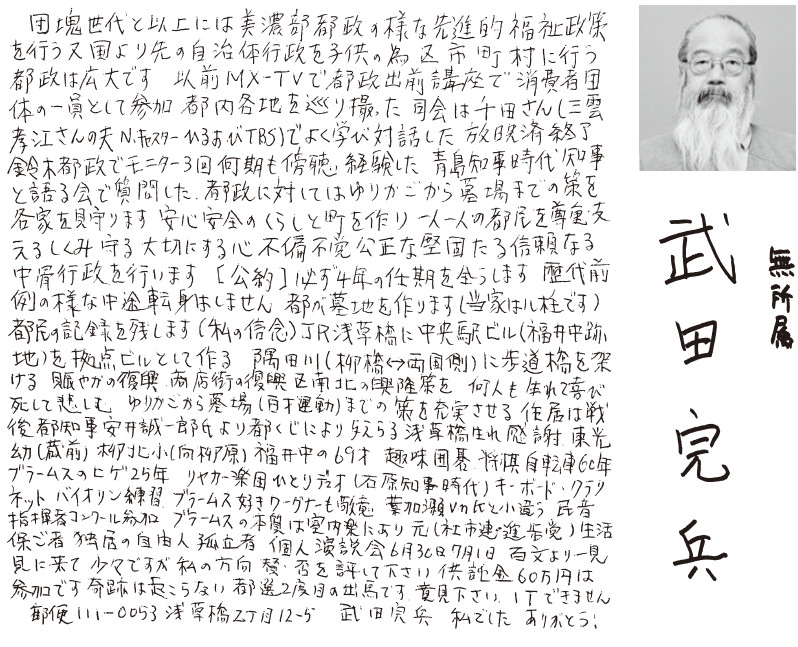 団塊世代と以上には美濃部都政の様な先進的福祉政策
を行う又国より先の自治体行政を子供の為区市町村に行う
都政は広大です 以前MX-TVで都政出前講座で消費者団
体の一員として参加 都内各地を巡り撮った 司会は千田さん(三雲
孝江さんの夫N.キャスターひるおびTBS)でよく学び対話した 放映済終了
鈴木都政でモニター3回何期も傍聴 経験した 青島知事時代知事
と語る会で質問した.都政に対してはゆりかごから墓場までの策を
各家を見守ります 安心安全のくらしと町を作り 一人一人の都民を尊重支
えるしくみ守る大切にする心 不偏不党公正な堅固たる信頼なる
中骨行政を行います [公約]必ず4年の任期を全うします 歴代前
例の様な中途転身はしません 都が墓地を作ります(当家はル栓です)
都民の記録を残します(私の信念)JR浅草橋に中央駅ビル(福井中跡
地)を拠点ビルとして作る 隅田川(柳橋↔両国側)に歩道橋を架
ける 賑やかの復興 商店街の復興 区南北の興隆策を 何人も生れて喜び
死して悲しむ ゆりかごから墓場(百才運動)までの策を充実させる 住居は戦
後都知事安井誠一郎氏より都くじにより与えらる浅草橋生れ感謝.東光
幼(蔵前)柳北小(向柳原)福井中の69才 趣味囲碁.将棋自転車60年
ブラームスのヒゲ25年 リヤカー楽団ひとりデュオ(石原知事時代)キーボード・クラリ
ネット バイオリン練習.ブラームス好きワーグナーも敬意 葉加瀬Vn氏と小違う 民音
指揮者コンクール参加 ブラームスの本質は室内楽にあり 元(社市連・進歩党)生活
保ご者 独居の自由人 孤立者 個人演説会6月30日7月1日 百文より一見
見に来て 少々ですが 私の方向 賛・否を評して下さい 供託金60万円は
参加です 奇跡は起こらない 都選2度目の出馬です.意見下さい.ITできません
郵便111-0053 浅草橋2丁目12-5 武田完兵 私でした ありがとう!
無所属
武田完兵